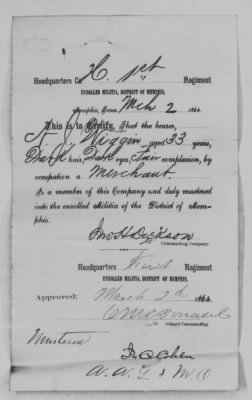 Headquarters Co. H. 1st Regiment
ENROLLED MILITIA, DISTRICT OF MEMPHIS,
Memphis, Tenn. Mch 2 1864.
This is to Certify, That the bearer,
Wiggin aged 33 years,
Dark hair, Dark eyes, Fair complexion, by
occupation a Merchant.
Is a member of this Company and duly mustered
into the enrolled Militia of the District of Mem-
phis.
Jno. H. Dickson
Commanding Company.
Headquarters First Regiment
ENROLLED MILITIA, DISTRICT OF MEMPHIS,
Approved: March 2d 1864
C McDonald
Colonel Commanding.
Mustered
A. A. G & M. O